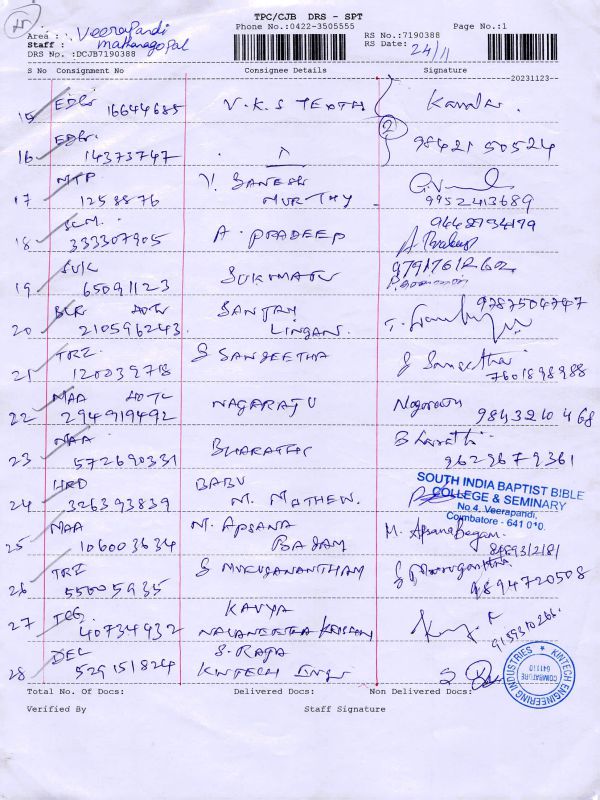 TPC/CJB DRS - SPT
Phone No.:0422-3505555
Page No.:1
25
Area : Veerapandi
Staff : Mathanagopal
DRS No. :DCJB7190388
RS No.:7190388
RS Date: 24/11
S No Consignment No Consignee Details Signature
20231123
15 16644685 V.K.S TEXTH
2
16 14373747 11 98421 50524
17 MTP 1258876 V. GANESH MURTHY 9952413689
18 333307905 A. PRADEEP
19 65091123 SUKUMAR
20 BLR 210596243 SANJAY LINGAN. 9787504747
21 TRZ 120039718 S SANGEETHA S Sangeetha 7601898988
22 MAA 294919492 NAGARAJU Nagaraju 9843210468
23 MAA 572690331 BHARATHI Bharathi 9629679361
24 HRD 326393839 BABU M. MATHEW.
SOUTH INDIA BAPTIST BIBLE
COLLEGE & SEMINARY
No.4, Veerapandi,
Coimbatore - 641 0*0.
25 MAA 106003634 M. APSANA BAGAM M. Apsana Begam.
26 TRZ 55005935 S MURUGANANTHAM 9894720508
27 40734932 KAVYA NAVANEETHA KRISHNAN 9159310266.
28 DEL 529151824 S. RAJA KINTECH ENGG
KINTECH ENGINEERING INDUSTRIES
COIMBATORE
641110
Total No. Of Docs: Delivered Docs: Non Delivered Docs:
Verified By Staff Signature